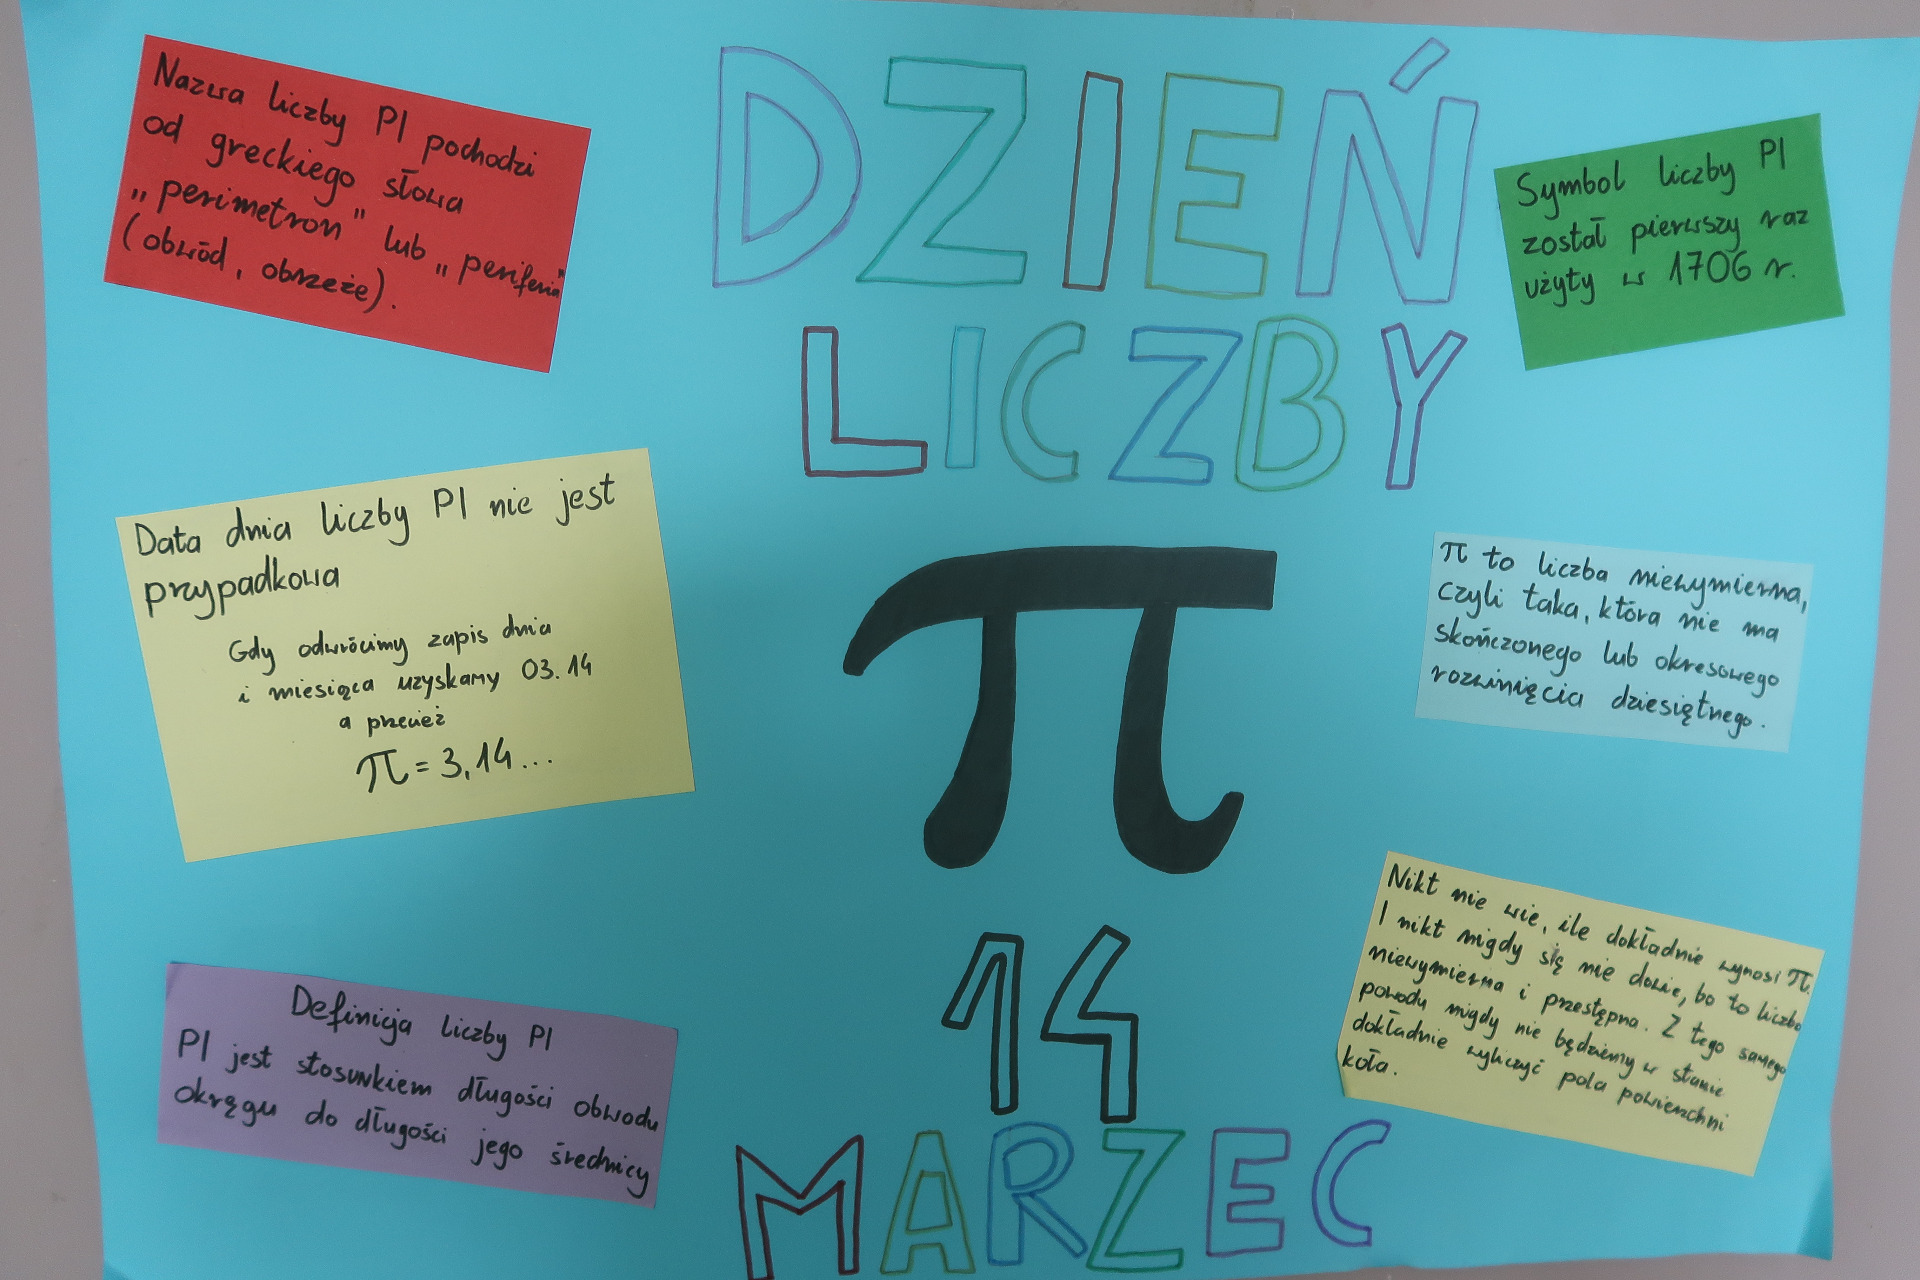 DZIEŃ
LICZBY
π
14
MARZEC
Nazwa liczby PI pochodzi
od greckiego słowa
„perimetron" lub „periferia"
(obwód, obrzeże).
Data dnia liczby PI nie jest
przypadkowa
Gdy odwrócimy zapis dnia
i miesiąca uzyskamy 03.14
a przecież
π = 3,14...
Definicja liczby PI
PI jest stosunkiem długości obwodu
okręgu do długości jego średnicy
Symbol liczby PI
został pierwszy raz
użyty w 1706 r.
π to liczba niewymierna,
czyli taka, która nie ma
skończonego lub okresowego
rozwinięcia dziesiętnego.
Nikt nie wie, ile dokładnie wynosi π.
I nikt nigdy się nie dowie, bo to liczba
niewymierna i przestępna. Z tego samego
powodu nigdy nie będziemy w stanie
dokładnie wyliczyć pola powierzchni
koła.